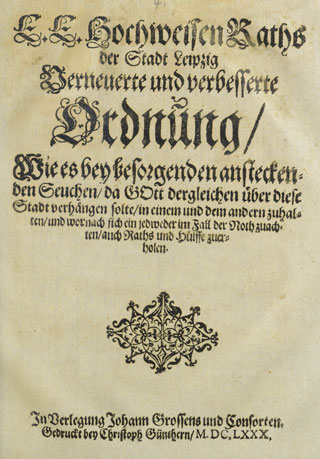 E. E. Hochweisen Raths
der Stadt Leipzig
Verneuerte und verbesserte
Ordnung/
Wie es bey besorgenden anstecken-
den Seuchen/ da GOtt dergleichen über diese
Stadt verhängen solte/ in einem und dem andern zuhal-
ten/ und wornach sich ein jedweder im Fall der Noth zuach-
ten/ auch Raths und Hülffe zuer-
holen.
In Verlegung Johann Grossens und Consorten.
Gedruckt bey Christoph Günthern/ M.DC,LXXX.